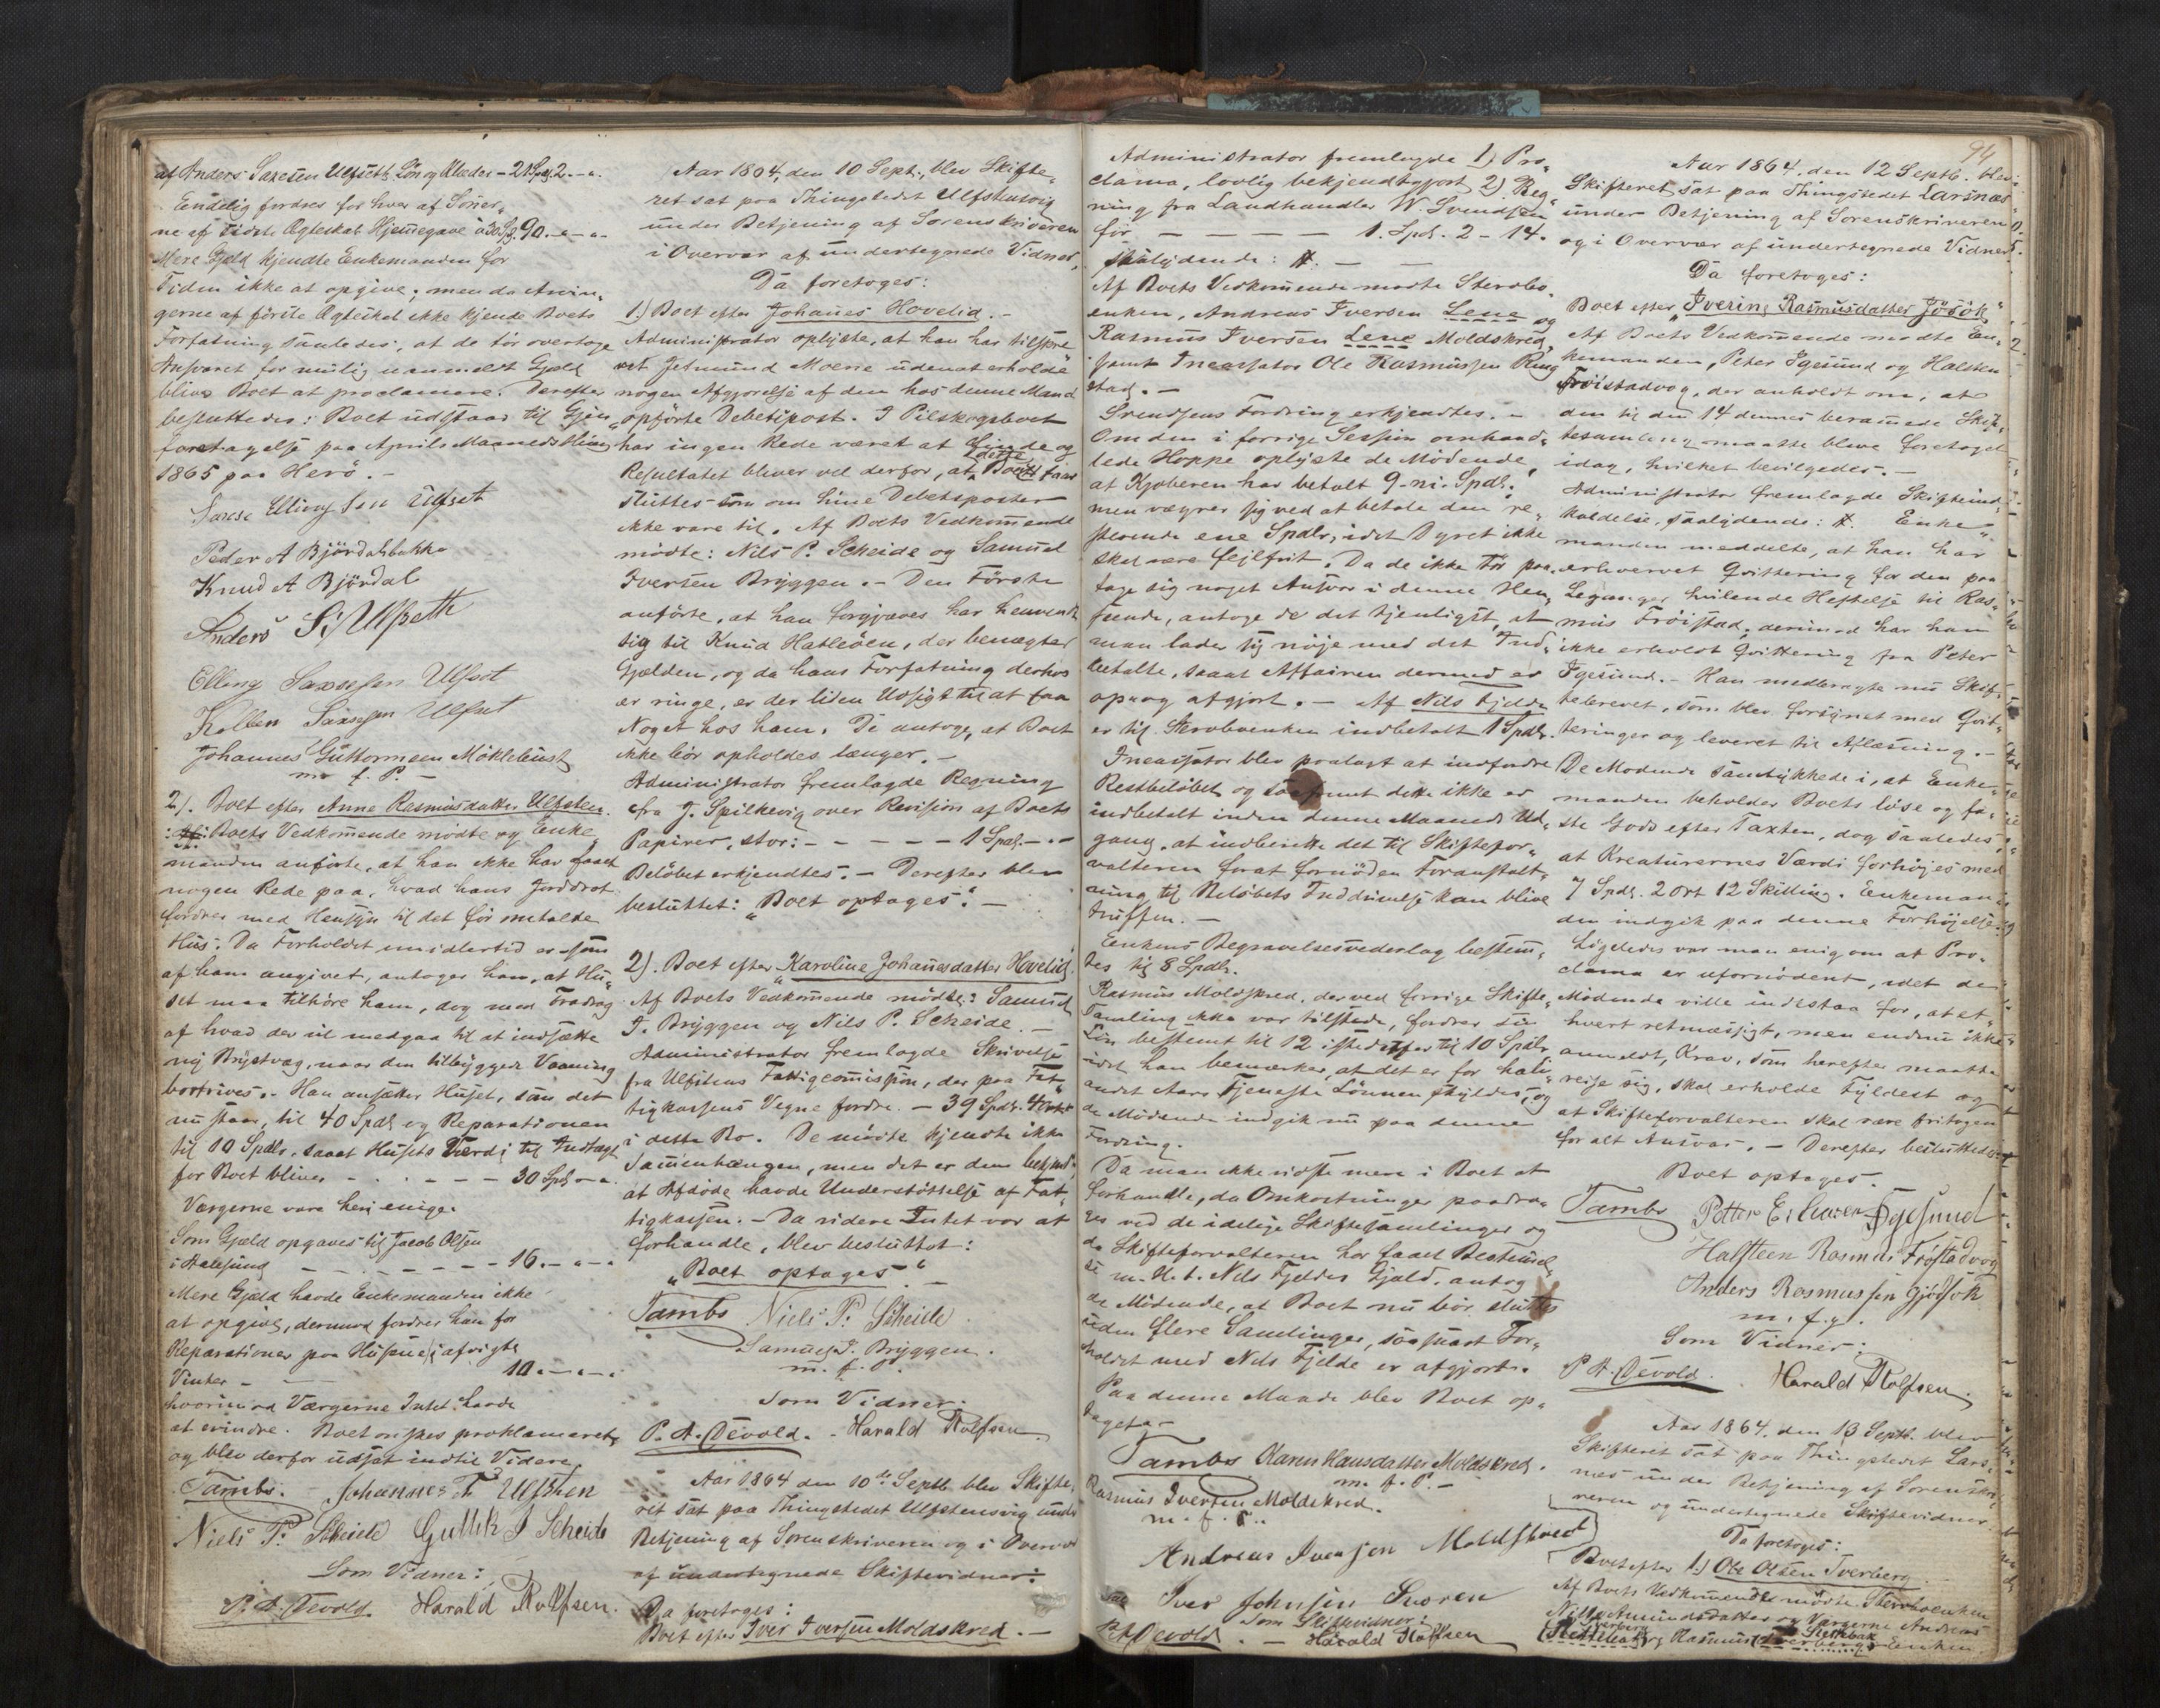 af Anders Saxesen Ulfseth Lön og Klæder - 21 Spd. 2 - "
Endelig fordres for hver af Sönner,
ne af Ægteskab Hjemmegave à 30 Sp. 90. - " - "
Mere Gjæld kjendte Enkemanden for
Tiden ikke at opgive; men da Arvin,
gerne af förste Ægteskab ikke kjende Boets
Forfatning saaledes, at de tör overtage
Ansvaret for mulig uanmeldt Gjæld
bliver Boet at proclamere. Derefter
besluttedes: Boet udstaar til Gjen„
foretagelse paa Aprils Maaneds
1865 paa Herö. -
Saxse Elling Sen Ulfset
Peder A Björdalsbakke
Knud A Björdal
Anders S. Ulfseth
Elling Saxsesen Ulfset
Saxsesen Ulfset
Johannes Guttormsen Möklebust
m. f. P. -
2). Boet efter Anne Rasmusdatter Ulfsten.
Af Boets Vedkommende mödte og Enke„
manden anförte, at han ikke har faaet
nogen Rede paa, hvad hans Jorddrot
fordrer med Hensyn til det för omtalte
Hus. Da Forholdet imidlertid er som
af ham angivet, antager han, at Hu„
set maa tilhöre ham, dog med Fradrag
af hvad der vil medgaa til at indsætte
ny Brystvæg, naar den tilbyggede Vaaning
bortrives. - Han ansætter Huset, som det
nu staar, til 40 Spdl og Reparationen
til 10 Spdlr. saaat Husets Værdi til Indtægt
for Boet bliver - - - - - 30 Spd - "
Værgerne vare heri enige.
Som Gjæld opgaves til Jacob Olsen
i Aalesund - - - - - - 16. - " - "
Mere Gjæld havde Enkemanden ikke
at opgive, derimod fordrer han for
Reparationer paa Husene i afvigte
Vinter - - 10. - " - "
hvorimod Værgerne Intet havde
at erindre. Boet önskes proklameret,
og blev derfor udsat indtil Videre.
Tambs. Johannes T. Ulfsten
Niels P. Scheide Gullik J Scheide
Som Vidner:
P. A. Devold. Harald Rolfsen.
Aar 1864, den 10 Septr., blev Skifte„
ret sat paa Thingstedet Ulfstensvig
under Betjening af Sorenskriveren
i Overvær af undertegnede Vidner,
Da foretoges:
1.) Boet efter Johannes Hovelid. -
Administrator oplyste, at han har tilskre„
vet Jetmund Moerve uden at erholde
nogen Afgjörelse af den hos denne Mand
opförte Debetspost. I Pilskogsboet
har ingen Rede været at finde og
Resultatet bliver vel derfor, at dette Boet faar
sluttes som om hine Debetsposter
ikke vare til. Af Boets Vedkommende
mödte: Nils P. Scheide og Samuel
Iversen Bryggen. - Den Förste
anförte, at han forgjæves har henvendt
sig til Knud Hatleöen, der benægter
Gjælden, og da hans Forfatning derhos
er ringe, er der liden Udsigt til at faa
Noget hos ham. De antoge, at Boet
ikke bör opholdes længer. -
Administrator fremlagde Regning
fra J. Spilkevig over Revision af Boets
Papirer, stor: - - - - - 1 Spd. - " -
Belöbet erkjendtes. - Derefter blev
besluttet: „Boet optages“. -
2). Boet efter „Karoline Johannesdatter Hovelid.
Af Boets Vedkommende mödte: Samuel
I. Bryggen og Nils P. Scheide. -
Administrator fremlagde Skrivelse
fra Ulfstens Fattigcommission, der paa Fat„
tigkassens Vegne fordre. - 39 Spd. 4 Ort
i dette Bo. De mödte kjendte ikke
Sammenhængen, men det er dem bekjendt,
at Afdöde havde Understöttelse af Fat„
tigkassen. - Da videre Intet var at
forhandle, blev besluttet:
„Boet optages“. -
Tambs Niels P. Scheide.
Samuel I. Bryggen.
m. f. P.
Som Vidner:
P. A. Devold. - Harald Rolfsen.
Aar 1864 den 10de Septbr. blev Skifte„
ret sat paa Thingstedet Ulfstensvig under
Betjening af Sorenskriveren og i Overvær
af undertegnede Skiftevidner:
Da foretoges:
Boet efter Iver Iversen Moldskred. -
Administrator fremlagde 1) Pro„
clama, lovlig bekjendtgjort 2) Reg„
ning fra Landhandler W. Svendsen
for - - - - 1. Spd. 2 - 14.
saalydende: #. - -
Af Boets Vedkommende mödte Stervbo„
enken, Andreas Iversen Lene og
Rasmus Iversen Lene Moldskred,
samt Incassator Ole Rasmussen Ring
stad. -
Svendsens Fordring erkjendtes. -
Om den i forrige Session omhand„
lede Hoppe oplyste de Mödende,
at Kjöberen har betalt 9 - ni - Spdl.
men vægrer sig ved at betale den re„
sterende ene Spdlr, idet Dyret ikke
skal være feilfrit. Da de ikke tör paa„
tage sig noget Ansvar i denne Hen„
seende, antoge de det tjenligst, at
man lader sig nöje med det Ind„
betalte, saaat Affairen dermed er
op og afgjort. - Af Nils Fjelde
er til Stervboenken indbetalt 1 Spdlr.
Incassator blev paalagt at indfordre
Restbelöbet og saafremt dette ikke er
indbetalt inden denne Maaneds Ud„
gang, at indberette det til Skiftefor„
valteren forat fornöden Foranstalt„
ning til Belöbets Inddrivelse kan blive
truffen. -
Enkens Begravelsesvederlag bestem„
tes til 8 Spdlr.
Rasmus Moldskred, der ved forrige Skifte„
samling ikke var tilstede, fordrer sin
Lön bestemt til 12 istedetfor til 10 Spdlr,
idet han bemærker, at det er for halv„
andet Aars Tjeneste Lönnen skyldes, og
de Mödende indgik nu paa denne
Fordring.
Da man ikke vidste mere i Boet at
forhandle, da Omkostninger paadra„
ges ved de idelige Skiftesamlinger og
da Skifteforvalteren har faaet Bestemmel
se m. H. t. Nils Fjeldes Gjæld, antog
de Mödende, at Boet nu bör sluttes
uden flere Samlinger, saasnart For„
holdet med Nils Fjelde er afgjort.
Paa denne Maade blev Boet op„
taget. -
Tambs Karen Hansdatter Moldskred.
m. f. P. -
Rasmus Iversen Moldskred.
m. f. P.
Andreas Iversen Moldskred
Iver Johnsen
Som Skiftevidner:
P. A. Devold. - Harald Rolfsen
94
Aar 1864, den 12 Septb. blev
Skifteret sat paa Thingstedet Larsnæs
under Betjening af Sorenskriveren
og i Overvær af undertegnede Vidner
Da foretoges:
Boet efter „Iverine Rasmusdatter Jösök“
Af Boets Vedkommende mödte En„
kemanden, Peter Igesund og Halsten
Fröistadvog, der anholdt om, at
den til den 14 dennes berammede Skif„
tesamling maatte blive foretaget
idag, hvilket bevilgedes. -
Administrator fremlagde Skifteind„
kaldelse, saalydende: #. Enke„
manden meddelte, at han har
erhvervet Qvittering for den paa
Leganger hvilende Heftelse til Ras„
mus Fröistad; derimod har han
ikke erholdt Qvittering fra Peter
Igesund. - Han medbragte nu Skif„
tebrevet, som blev forsynet med Qvit„
teringer og leveret til Aflæsning. -
De Mödende samtykkede i, at Enke„
manden beholder Boets löse og fa„
ste Gods efter Taxten, dog saaledes,
at Kreaturernes Værdi forhöjes med
7 Spdl. 2 Ort 12 Skilling. Enkeman„
den indgik paa denne Forhöjelse.
Ligeledes var man enig om at Pro„
clama er ufornödent, idet de
Mödende ville indestaa for, at et„
hvert retmæssigt, men endnu ikke
anmeldt, Krav, som herefter maatte
rejse sig, skal erholde Fyldest og
at Skifteforvalteren skal være fritagen
for alt Ansvar. - Derefter besluttedes:
Boet optages.
Tambs Petter E. Igesund
Halsteen Rasmus. Fröstadvog
Anders Rasmussen Gjödsök
m. f. P.
Som Vidner:
P. A. Devold. Harald Rolfsen.
Aar 1864, den 13 Septb. blev
Skifteret sat paa Thingstedet Lars„
næs under Betjening af Sorenskri„
veren og undertegnede Skiftevidner.
Da foretoges:
Boet efter 1.) Ole Olsen Tverberg.
Af Boets Vedkommende mödte Stervboenken
og Værgerne Andreas
Rasmus Enken